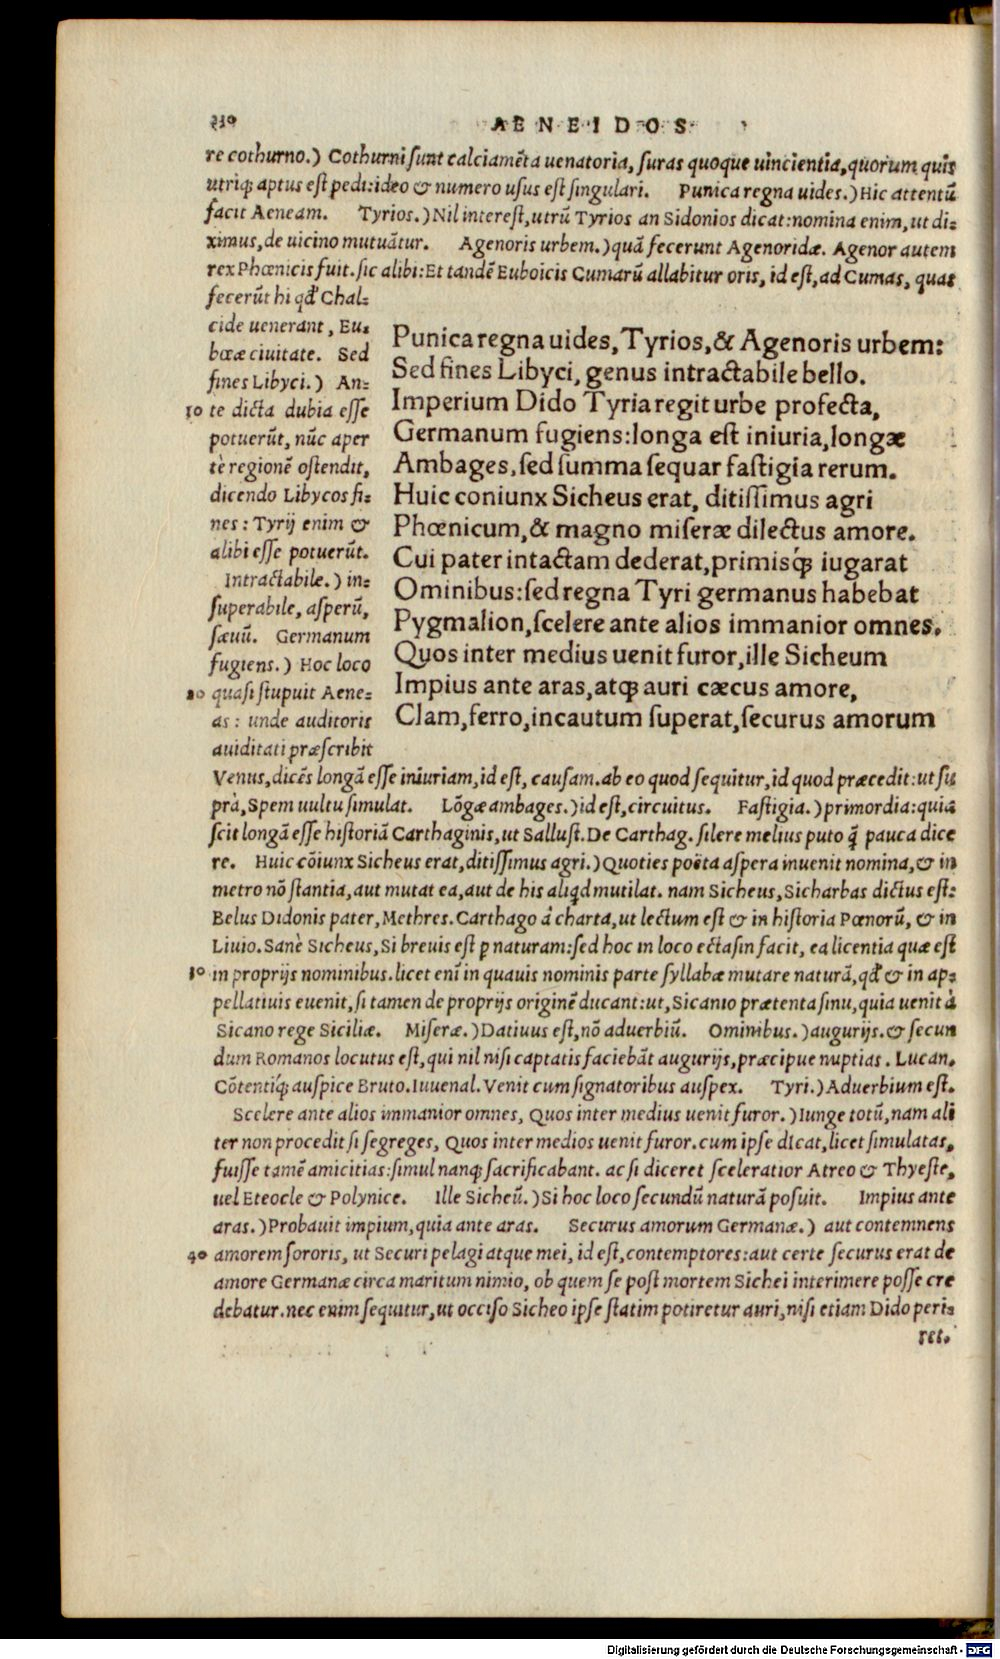 310
AENEIDOS
re cothurno.) Cothurni ſunt calciamẽta uenatoria, ſuras quoque uincientia, quorum quis
utriq; aptus eſt pedi: ideo & numero uſus eſt ſingulari. Punica regna uides.) Hic attentũ
facit Aeneam. Tyrios.) Nil intereſt, utrũ Tyrios an Sidonios dicat: nomina enim, ut di-
ximus, de uicino mutuãtur. Agenoris urbem.) quã fecerunt Agenoridæ. Agenor autem
rex Phœnicis fuit. ſic alibi: Et tandẽ Euboicis Cumarũ allabitur oris, id eſt, ad Cumas, quas
fecerũt hi qđ Chal-
cide uenerant, Eu-
bœæ ciuitate. Sed
fines Libyci.) An-
10 te dicta dubia eſſe
potuerũt, nũc aper
tè regionẽ oſtendit,
dicendo Libycos fi-
nes: Tyrij enim &
alibi eſſe potuerũt.
Intractabile.) in-
ſuperabile, aſperũ,
ſæuũ. Germanum
fugiens.) Hoc loco
20 quaſi ſtupuit Aene-
as: unde auditoris
auiditati præſcribit
Punica regna uides, Tyrios, & Agenoris urbem:
Sed fines Libyci, genus intractabile bello.
Imperium Dido Tyria regit urbe profecta,
Germanum fugiens: longa eſt iniuria, longæ
Ambages, ſed ſumma ſequar faſtigia rerum.
Huic coniunx Sicheus erat, ditiſſimus agri
Phœnicum, & magno miſeræ dilectus amore.
Cui pater intactam dederat, primisq́; iugarat
Ominibus: ſed regna Tyri germanus habebat
Pygmalion, ſcelere ante alios immanior omnes.
Quos inter medius uenit furor, ille Sicheum
Impius ante aras, atq; auri cæcus amore,
Clam, ferro, incautum ſuperat, ſecurus amorum
Venus, dicẽs longã eſſe iniuriam, id eſt, cauſam. ab eo quod ſequitur, id quod præcedit: ut ſu
prà, Spem uultu ſimulat. Lõgæ ambages.) id eſt, circuitus. Faſtigia.) primordia: quia
ſcit longã eſſe hiſtoriã Carthaginis, ut Salluſt. De Carthag. ſilere melius puto q̃ pauca dice
re. Huic cõiunx Sicheus erat, ditiſſimus agri.) Quoties poëta aſpera inuenit nomina, & in
metro nõ ſtantia, aut mutat ea, aut de his aliqd mutilat. nam Sicheus, Sicharbas dictus eſt:
Belus Didonis pater, Methres. Carthago à charta, ut lectum eſt & in hiſtoria Pœnorũ, & in
Liuio. Sanè Sicheus, Si breuis eſt p naturam: ſed hoc in loco ectaſin facit, ea licentia quæ eſt
30 in proprijs nominibus. licet enĩ in quauis nominis parte ſyllabæ mutare naturã, qđ & in ap-
pellatiuis euenit, ſi tamen de proprijs originẽ ducant: ut, Sicanio prætenta ſinu, quia uenit à
Sicano rege Siciliæ. Miſeræ.) Datiuus eſt, nõ aduerbiũ. Ominibus.) augurijs. & ſecun
dum Romanos locutus eſt, qui nil niſi captatis faciebãt augurijs, præcipue nuptias. Lucan.
Cõtentiq́; auſpice Bruto. Iuuenal. Venit cum ſignatoribus auſpex. Tyri.) Aduerbium eſt.
Scelere ante alios immanior omnes, Quos inter medius uenit furor.) Iunge totũ, nam ali
ter non procedit ſi ſegreges, Quos inter medios uenit furor. cum ipſe dicat, licet ſimulatas,
fuiſſe tamẽ amicitias: ſimul nanq; ſacrificabant. ac ſi diceret ſceleratior Atreo & Thyeſte,
uel Eteocle & Polynice. Ille Sicheũ.) Si hoc loco ſecundũ naturã poſuit. Impius ante
aras.) Probauit impium, quia ante aras. Securus amorum Germanæ.) aut contemnens
40 amorem ſororis, ut Securi pelagi atque mei, id eſt, contemptores: aut certe ſecurus erat de
amore Germanæ circa maritum nimio, ob quem ſe poſt mortem Sichei interimere poſſe cre
debatur. nec enim ſequitur, ut occiſo Sicheo ipſe ſtatim potiretur auri, niſi etiam Dido peri-
ret.
Digitalisierung gefördert durch die Deutsche Forschungsgemeinschaft - DFG